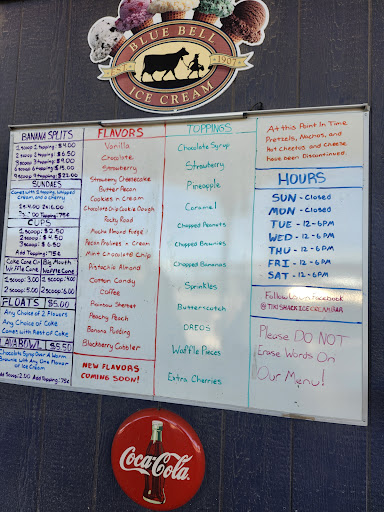 BLUE BELL
EST. 1907
ICE CREAM
BANANA SPLITS
1 scoop 1 topping: $4.00
2 scoop 2 topping: $6.50
3 scoop 3 topping: $9.00
6 scoops 6 topping: $15.00
9 scoop 9 topping: $22.00
SUNDAES
Comes with 1 topping, whipped
cream, and a cherry
1s: 4.00 2s: 6.00
3s: 7.00 Topping: 75¢
CUPS
1 scoop: $2.50
2 scoop: $4.50
3 scoop: $6.50
Add Topping: 75¢
Cake Cone Or
Waffle Cone
Big Mouth
Waffle Cone
FLOATS $5.00
Any Choice of 2 Flavors
Any Choice of Coke
Comes with Rest of Coke
$5.50
Chocolate Syrup Over A Warm
Brownie with Any One Flavor
of Ice Cream
Add Scoop: 2.00 Add Topping: 75¢
FLAVORS
Vanilla
Chocolate
Strawberry
Strawberry Cheesecake
Butter Pecan
Cookies n Cream
Chocolate Chip Cookie Dough
Rocky Road
Mocha Almond Fudge
Pecan Pralines n Cream
Mint Chocolate Chip
Pistachio Almond
Cotton Candy
Coffee
Rainbow Sherbet
Peachy Peach
Banana Pudding
Blackberry Cobbler
NEW FLAVORS
COMING SOON!
TOPPINGS
Chocolate Syrup
Strawberry
Pineapple
Caramel
Chopped Peanuts
Chopped Brownies
Chopped Bananas
Sprinkles
Butterscotch
OREOS
Waffle Pieces
Extra Cherries
At this Point In Time
Pretzels, Nachos, and
Hot Cheetos and Cheese
have been Discontinued.
HOURS
SUN - Closed
MON - Closed
TUE - 12-6PM
WED - 12-6PM
THU - 12-6PM
FRI - 12-6PM
SAT - 12-6PM
Follow Us on Facebook
Please DO NOT
Erase Words On
Our Menu!
Coca-Cola